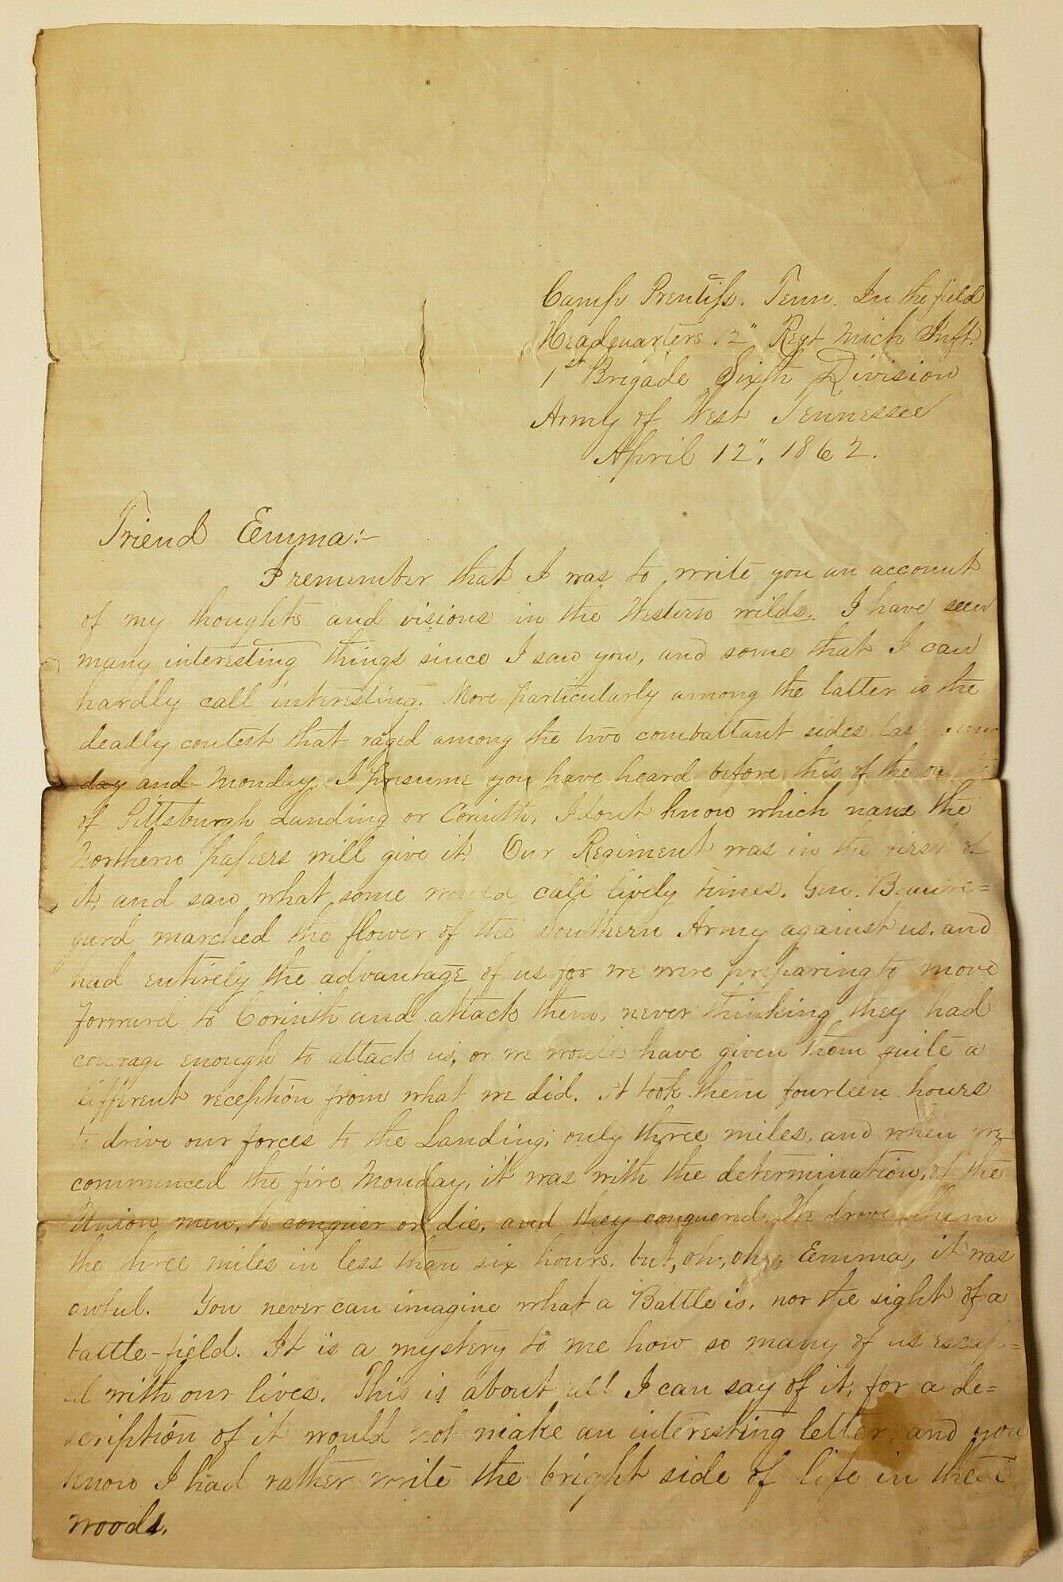 Camp Prentiss. Tenn. In the field
Headquarters 12" Regt Mich Inft.
1st Brigade Sixth Division
Army of West Tennessee
April 12", 1862.
Friend Emma:-
I remember that I was to write you an account
of my thoughts and visions in the Western wilds. I have seen
many interesting things since I saw you, and some that I can
hardly call interesting. More particularly among the latter is the
deadly contest that raged among the two combattant sides
day and Monday. I presume you have heard before this of the
of Pittsburgh Landing or Corinth, I dont know which name the
Northern papers will give it. Our Regiment was in the first of
it, and saw what some would call lively times. Gen. Beaure=
gard marched the flower of the Southern Army against us, and
had entirely the advantage of us for we were preparing to move
forward to Corinth and attack them, never thinking they had
courage enough to attack us, or we would have given them quite a
different reception from what we did. It took them fourteen hours
to drive our forces to the Landing; only three miles, and when we
commenced the fire Monday, it was with the determination, of the
Union men, to conquer or die, and they conquered. We drove them
the three miles in less than six hours, but, oh, oh, Emma, it was
awful. You never can imagine what a Battle is, nor the sight of a
battle-field. It is a mystery to me how so many of us escap=
ed with our lives. This is about all I can say of it, for a de=
scription of it would not make an interesting letter, and you
know I had rather write the bright side of life in these
woods.